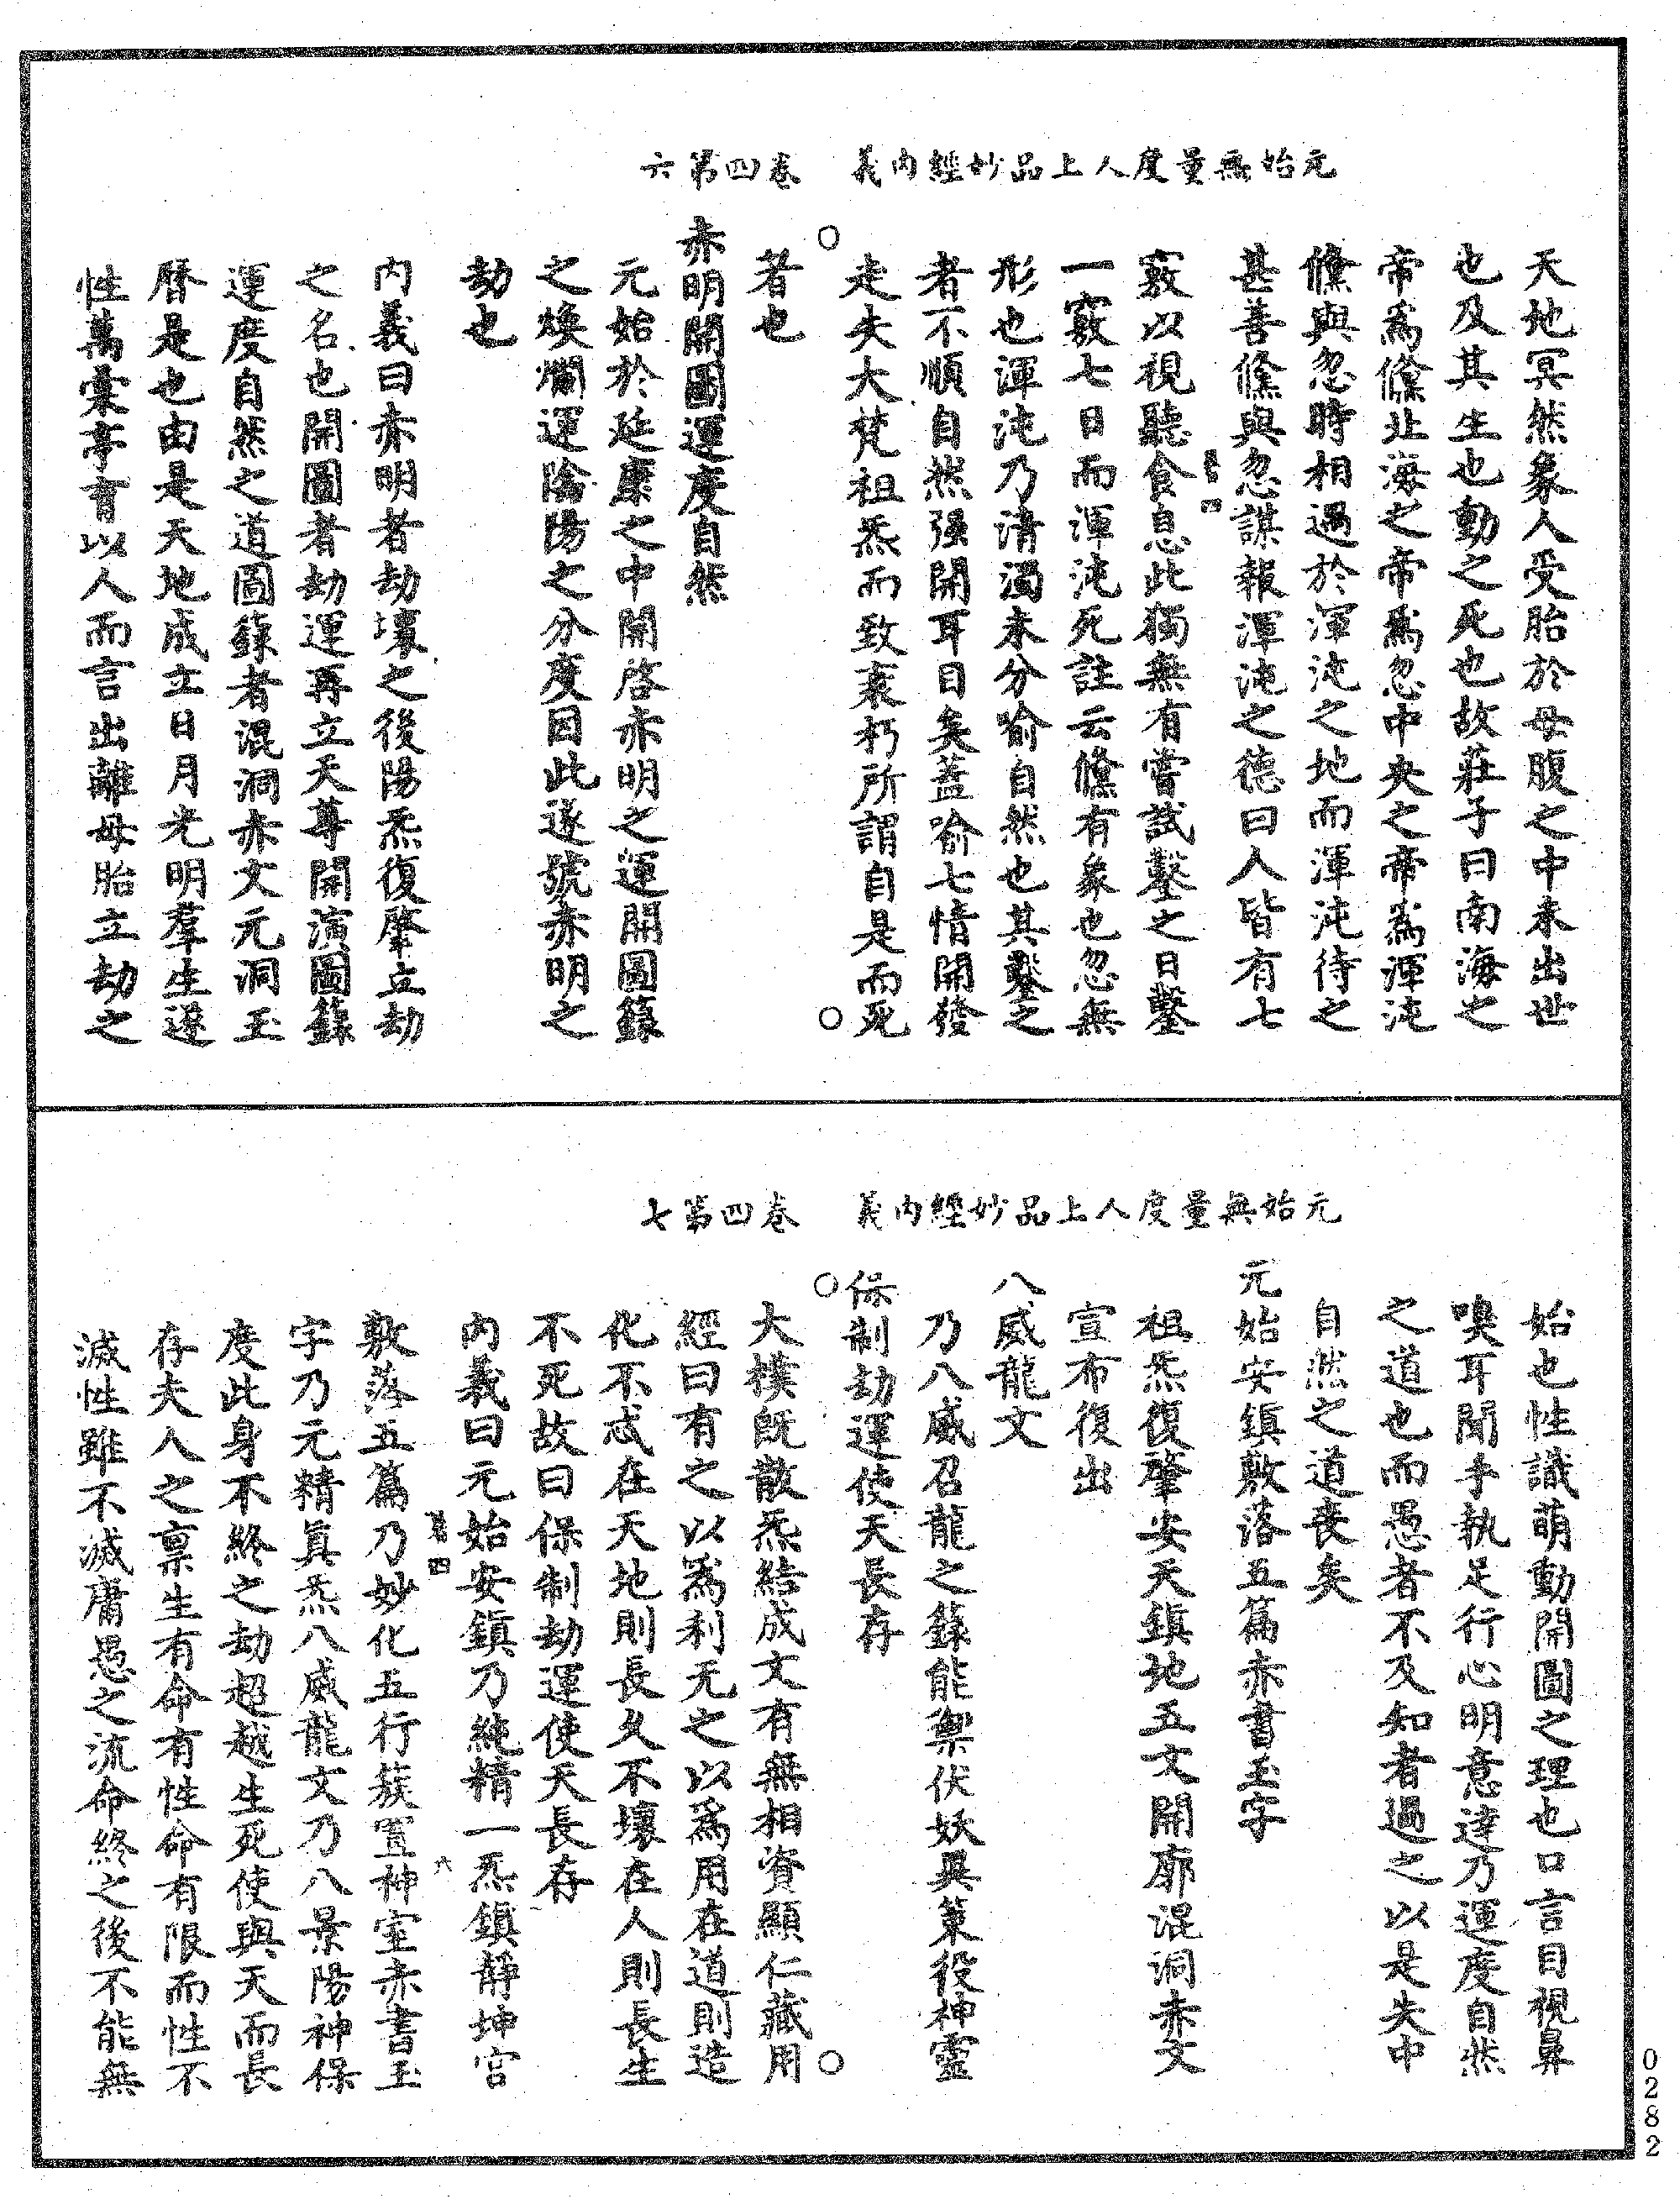 元始無量度人上品妙經內義　卷四第六
天地冥然象人受胎於母腹之中未出世
也及其生也動之死也故莊子曰南海之
帝爲儵北海之帝爲忽中央之帝爲渾沌
儵與忽時相遇於渾沌之地而渾沌待之
甚善儵與忽謀報渾沌之德曰人皆有七
竅以視聽食息此獨無有嘗試鑿之日鑿
一竅七日而渾沌死註云儵有象也忽無
形也渾沌乃清濁未分喻自然也其鑿之
者不順自然强開耳目矣蓋喻七情開發
走失大梵祖炁而致衰朽所謂自是而死
者也
赤明開圖運度自然
元始於延康之中開啓赤明之運開圖籙
之煥爛運陰陽之分度因此遂號赤明之
劫也
內義曰赤明者劫壞之後陽炁復肇立劫
之名也開圖者劫運再立天尊開演圖籙
運度自然之道圖籙者混洞赤文元洞玉
曆是也由是天地成立日月光明羣生遂
性萬彙亭育以人而言出離母胎立劫之
元始無量度人上品妙經內義　卷四第七
始也性識萌動開圖之理也口言目視鼻
嗅耳聞手執足行心明意達乃運度自然
之道也而愚者不及知者過之以是失中
自然之道喪矣
元始安鎮敷落五篇赤書玉字
祖炁復肇安天鎮地五文開廓混洞赤文
宣布復出
八威龍文
乃八威召龍之籙能禦伏妖異策役神靈
保制劫運使天長存
大樸旣散炁結成文有無相資顯仁藏用
經曰有之以爲利无之以爲用在道則造
化不忒在天地則長久不壞在人則長生
不死故曰保制劫運使天長存
內義曰元始安鎮乃純精一炁鎮靜坤宮
敷落五篇乃妙化五行蔟置神室赤書玉
字乃元精眞炁八威龍文乃八景陽神保
度此身不終之劫超越生死使與天而長
存夫人之禀生有命有性命有限而性不
滅性雖不滅庸愚之流命終之後不能無
0282